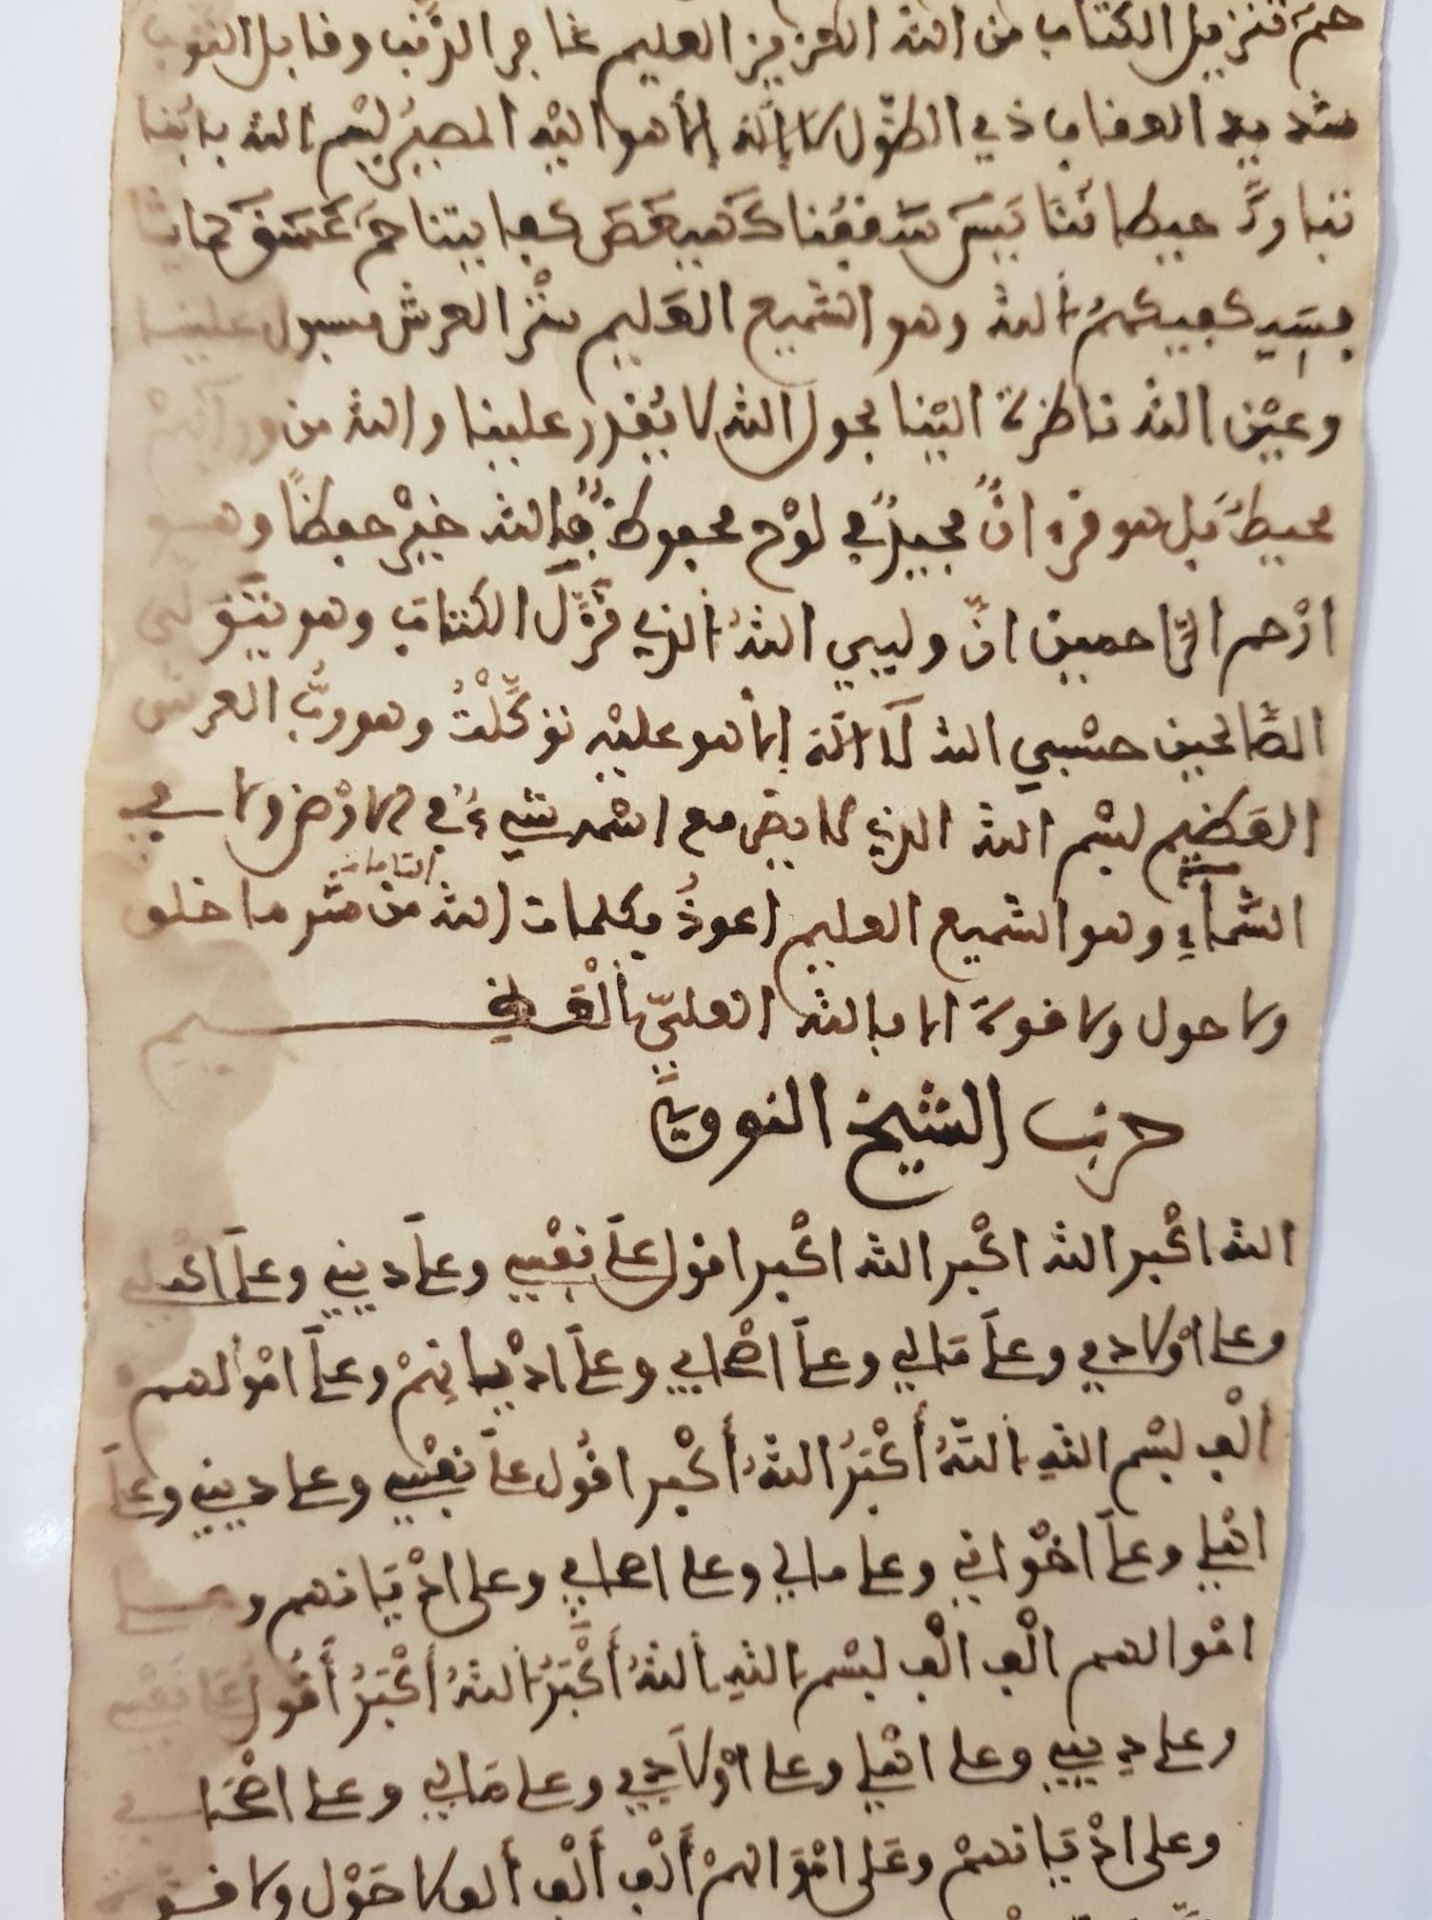 حم تنزيل الكتاب من الله العزيز العليم غافر الذنب وقابل التوب
شديد العقاب ذي الطّول لا إله إلا هو اليْه المصيرُ بسْم الله بابُنا
تبارَكَ حيطانُنا يَسَ سَقفُنا كَهيعَصَ كفايتنا حمَ عَسَقَ حمايتنا
فسَيكفيكهمُ الله وهو السّميع العَليم ستْر العرش مسبول علينا
وعيْن الله ناظرة اليْنا بحول الله لا يُقْدر علينا والله من ورآئهمْ
محيطٌ بل هو قرءانٌ مجيدٌ في لوْح محفوظٍ فالله خيْر حفظًا وهو
ارْحم الرّاحمين انّ وليي اللهُ الذي نَزَّلَ الكتابَ وهو يَتَوَلى
الصّالحين حسْبي الله لَا الَه إلا هو عليْه توكَّلْتُ وهو ربُّ العرش
العَظيم بسْم الله الذي لا يضر مع اسْمه شيْءٌ في الارْض ولا في
السّمآءِ وهو السّميع العليم اعوذُ بكلمات الله التامات من شر ما خلق
ولا حول ولا قوة الا بالله العليّ الْعظيم
حزب الشيخ النووي
الله اكْبر الله اكْبر الله اكْبر اقول علَى نفْسي وعلَى ديني وعلَى اهْلي
وعلى اوْلادي وعلَى مَالي وعلَى اصْحابي وعلَى ادْيانهمْ وعلَى امْوالهم
ألْف بسْم اللهِ اللهُ أَكْبَرُ اللهُ أَكْبر اقُول علَى نفْسي وعلى ديني وعلَى
اهْلي وعلَى اخْواني وعلى مالي وعلى اصحابي وعلى ادْيَانهم وعلى
امْوالهم الْف الْف بسْم اللهِ اللهُ أَكْبَرُ اللهُ أَكْبَرُ أَقُول عَلَى نَفْسي
وعلى دِيني وعلى اهْلي وعلى اوْلَادي وعلى مَالي وعلى اصْحَابي
وعلى ادْيَانهمْ وعَلى امْوَالهمْ أَلْف أَلْف ألف لا حَوْل ولا قوة